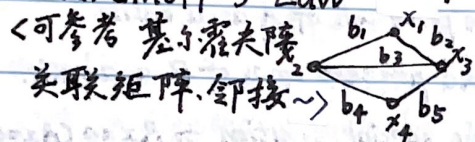 <可参考 基尔霍夫阵
关联矩阵、邻接~>
b₁ x₁ b₂
x₂ b₃ x₃
b₄ x₄ b₅